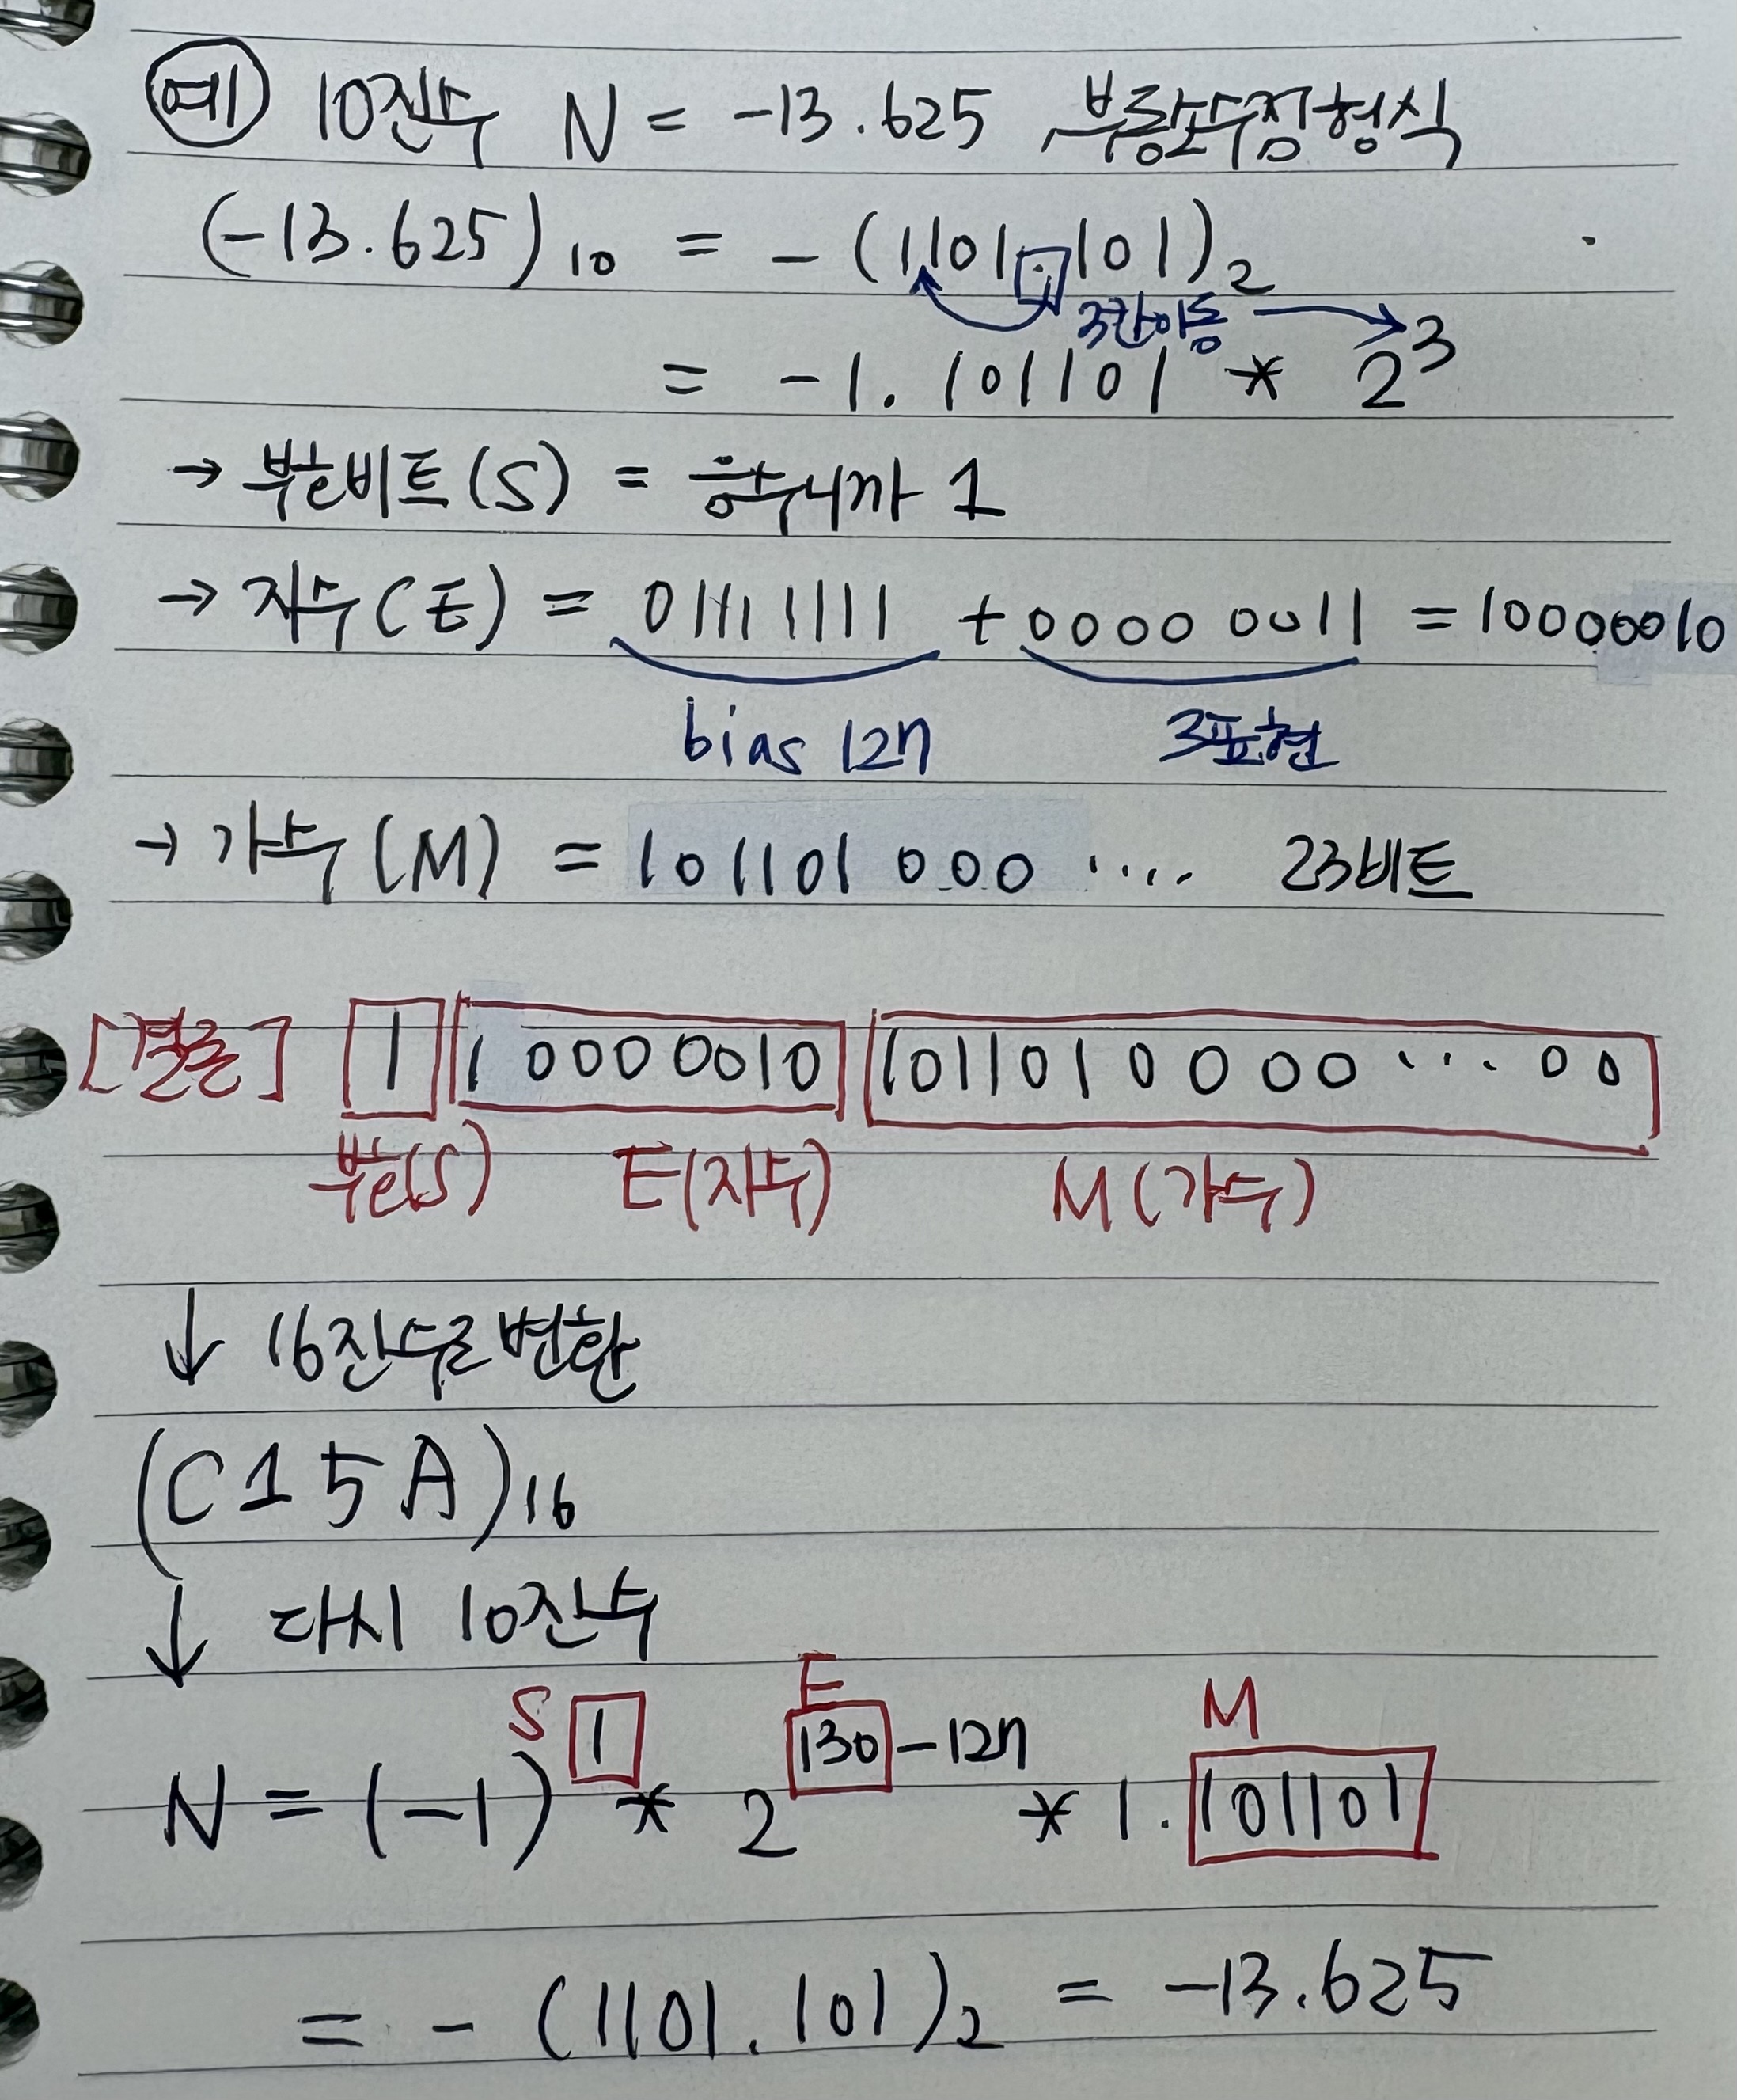 예 10진수 N = -13.625 부동소수점형식
(-13.625)10 = -(1101.101)2
3칸이동
= -1.101101 * 2^3
→ 부호비트(S) = 음수니까 1
→ 지수(E) = 01111111 + 00000011 = 10000010
bias 127 3표현
→ 가수(M) = 101101000 .... 23비트
[결론] 1 10000010 1011010000...00
부호(S) E(지수) M(가수)
↓ 16진수로 변환
(C15A)16
↓ 다시 10진수
S E M
N = (-1)^1 * 2^130-127 * 1.101101
= -(1101.101)2 = -13.625